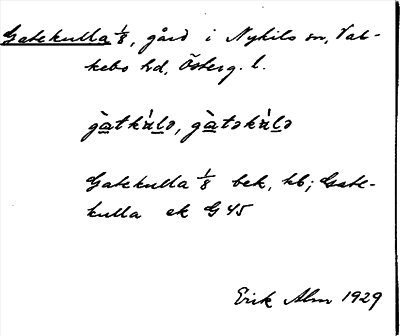 Gatekulla 1/8, gård i Nykils sn, Val-
kebo hd, Österg. l.
gàtkùlə, gàtəkùlə
Gatekulla 1/8 bek, kb; Gate-
kulla ek G 45
Erik Alm 1929